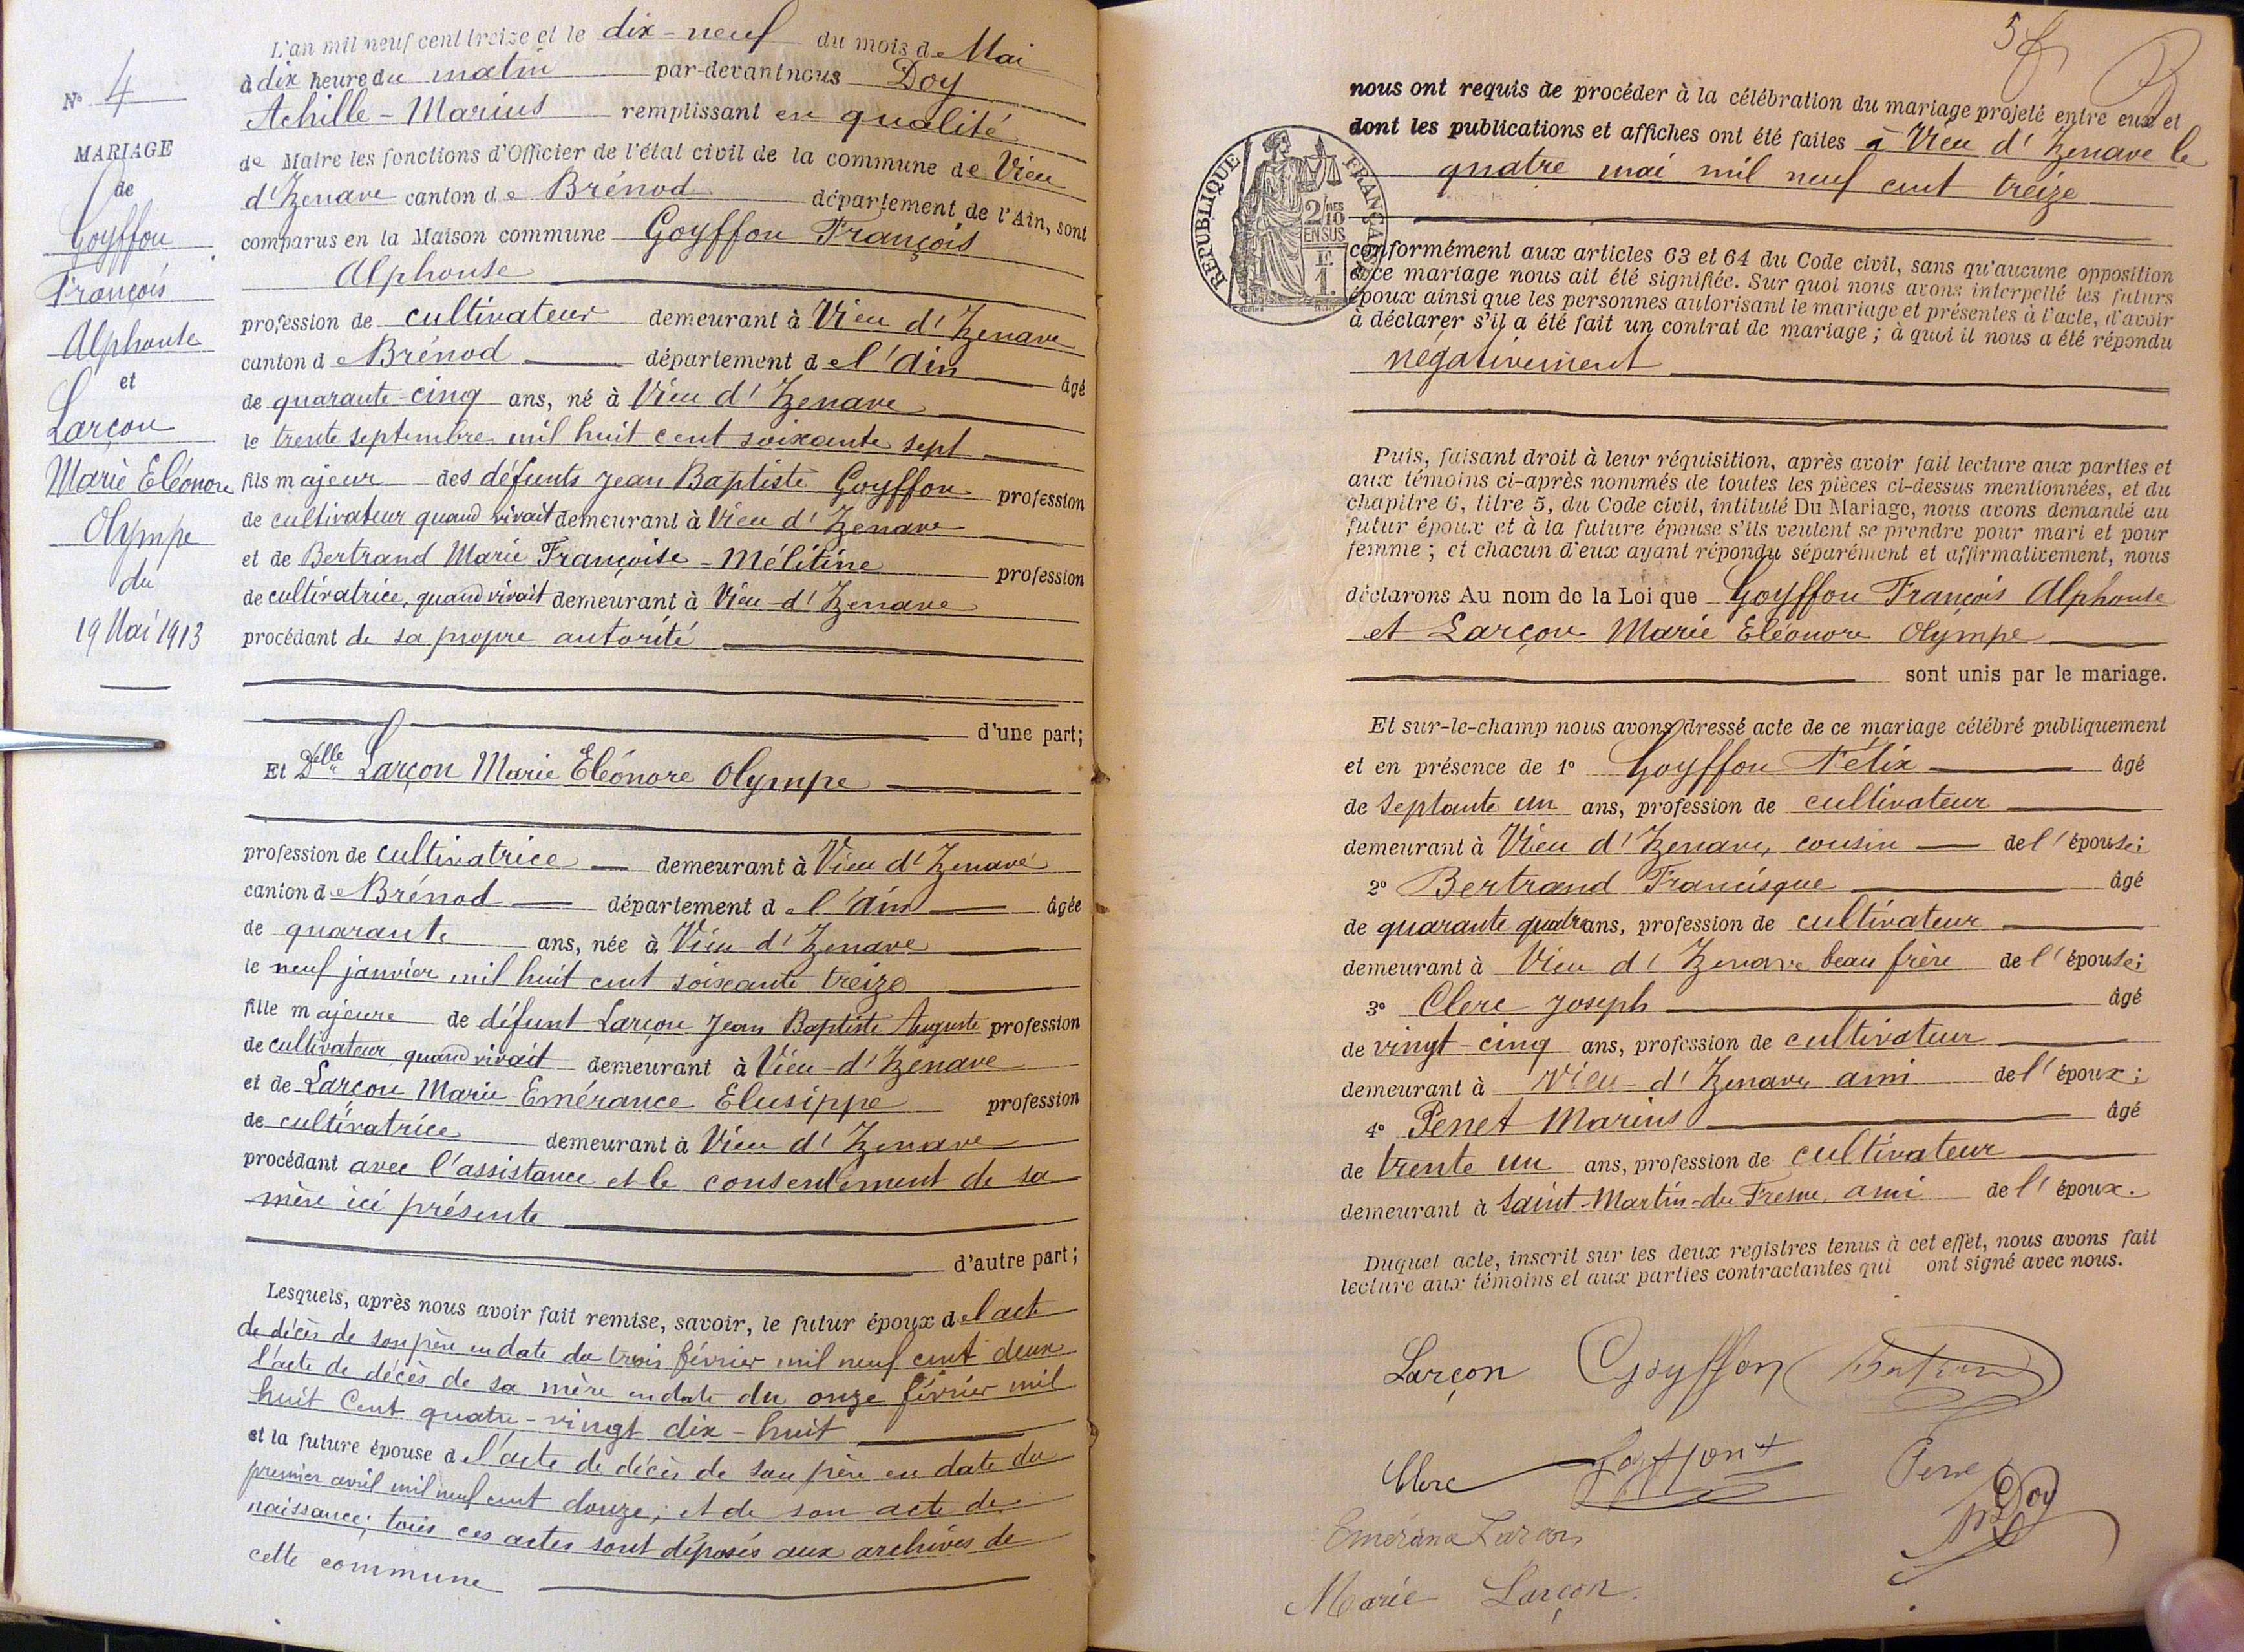 N° 4
MARIAGE
de
Goyffon
François
Alphonse
et
Larçon
Marie Eléonore
Olympe
du
19 Mai 1913
L'an mil neuf cent treize et le dix-neuf du mois de Mai
à dix heure du matin par-devant nous Doy
Achille-Marius remplissant en qualité
de Maire les fonctions d'Officier de l'état civil de la commune de Vieu
d'Izenave canton de Brénod département de l'Ain, sont
comparus en la Maison commune Goyffon François
Alphonse
profession de cultivateur demeurant à Vieu d'Izenave
canton de Brénod département de l'Ain âgé
de quarante-cinq ans, né à Vieu d'Izenave
le trente septembre mil huit cent soixante sept
fils majeur des défunts Jean Baptiste Goyffon profession
de cultivateur quand vivait demeurant à Vieu d'Izenave
et de Bertrand Marie Françoise-Mélitine profession
de cultivatrice, quand vivait demeurant à Vieu-d'Izenave
procédant de sa propre autorité
d'une part;
Et Delle Larçon Marie Eléonore Olympe
profession de cultivatrice demeurant à Vieu d'Izenave
canton de Brénod département de l'Ain âgée
de quarante ans, née à Vieu d'Izenave
le neuf janvier mil huit cent soixante treize
fille majeure de défunt Larçon Jean Baptiste Auguste profession
de cultivateur quand vivait demeurant à Vieu-d'Izenave
et de Larçon Marie Emérance Elusippe profession
de cultivatrice demeurant à Vieu d'Izenave
procédant avec l'assistance et le consentement de sa
mère ici présente
d'autre part;
Lesquels, après nous avoir fait remise, savoir, le futur époux de l'acte
de décès de son père en date du trois février mil neuf cent deux
l'acte de décès de sa mère en date du onze février mil
huit cent quatre-vingt dix-huit
et la future épouse de l'acte de décès de son père en date du
premier avril mil neuf cent douze; et de son acte de
naissance; tous ces actes sont déposés aux archives de
cette commune
5
nous ont requis de procéder à la célébration du mariage projeté entre eux et
dont les publications et affiches ont été faites à Vieu d'Izenave le
quatre mai mil neuf cent treize
REPUBLIQUE FRANÇAISE
2/10MES
EN SUS
1F.
conformément aux articles 63 et 64 du Code civil, sans qu'aucune opposition
à ce mariage nous ait été signifiée. Sur quoi nous avons interpellé les futurs
époux ainsi que les personnes autorisant le mariage et présentes à l'acte, d'avoir
à déclarer s'il a été fait un contrat de mariage; à quoi il nous a été répondu
négativement
Puis, faisant droit à leur réquisition, après avoir fait lecture aux parties et
aux témoins ci-après nommés de toutes les pièces ci-dessus mentionnées, et du
chapitre 6, titre 5, du Code civil, intitulé Du Mariage, nous avons demandé au
futur époux et à la future épouse s'ils veulent se prendre pour mari et pour
femme; et chacun d'eux ayant répondu séparément et affirmativement, nous
déclarons Au nom de la Loi que Goyffon François Alphonse
et Larçon Marie Eléonore Olympe
sont unis par le mariage.
Et sur-le-champ nous avons dressé acte de ce mariage célébré publiquement
et en présence de 1° Goyffon Félix âgé
de septante un ans, profession de cultivateur
demeurant à Vieu d'Izenave, cousin de l'épouse;
2° Bertrand Francisque âgé
de quarante quatre ans, profession de cultivateur
demeurant à Vieu d'Izenave beau frère de l'épouse;
3° Clerc Joseph âgé
de vingt-cinq ans, profession de cultivateur
demeurant à Vieu-d'Izenave ami de l'époux;
4° Penet Marius âgé
de trente un ans, profession de cultivateur
demeurant à Saint-Martin-du Fresne, ami de l'époux.
Duquel acte, inscrit sur les deux registres tenus à cet effet, nous avons fait
lecture aux témoins et aux parties contractantes qui ont signé avec nous.
Larçon Goyffon
Clerc Goyffon
Doy
Emérance Larçon
Marie Larçon.